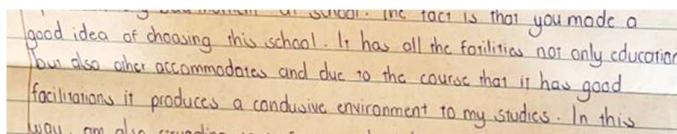 at school. The fact is that you made a
good idea of choosing this school. It has all the facilities not only education
but also other accommodates and due to the course that it has good
facilitations it produces a condusive environment to my studies. In this
way, am also